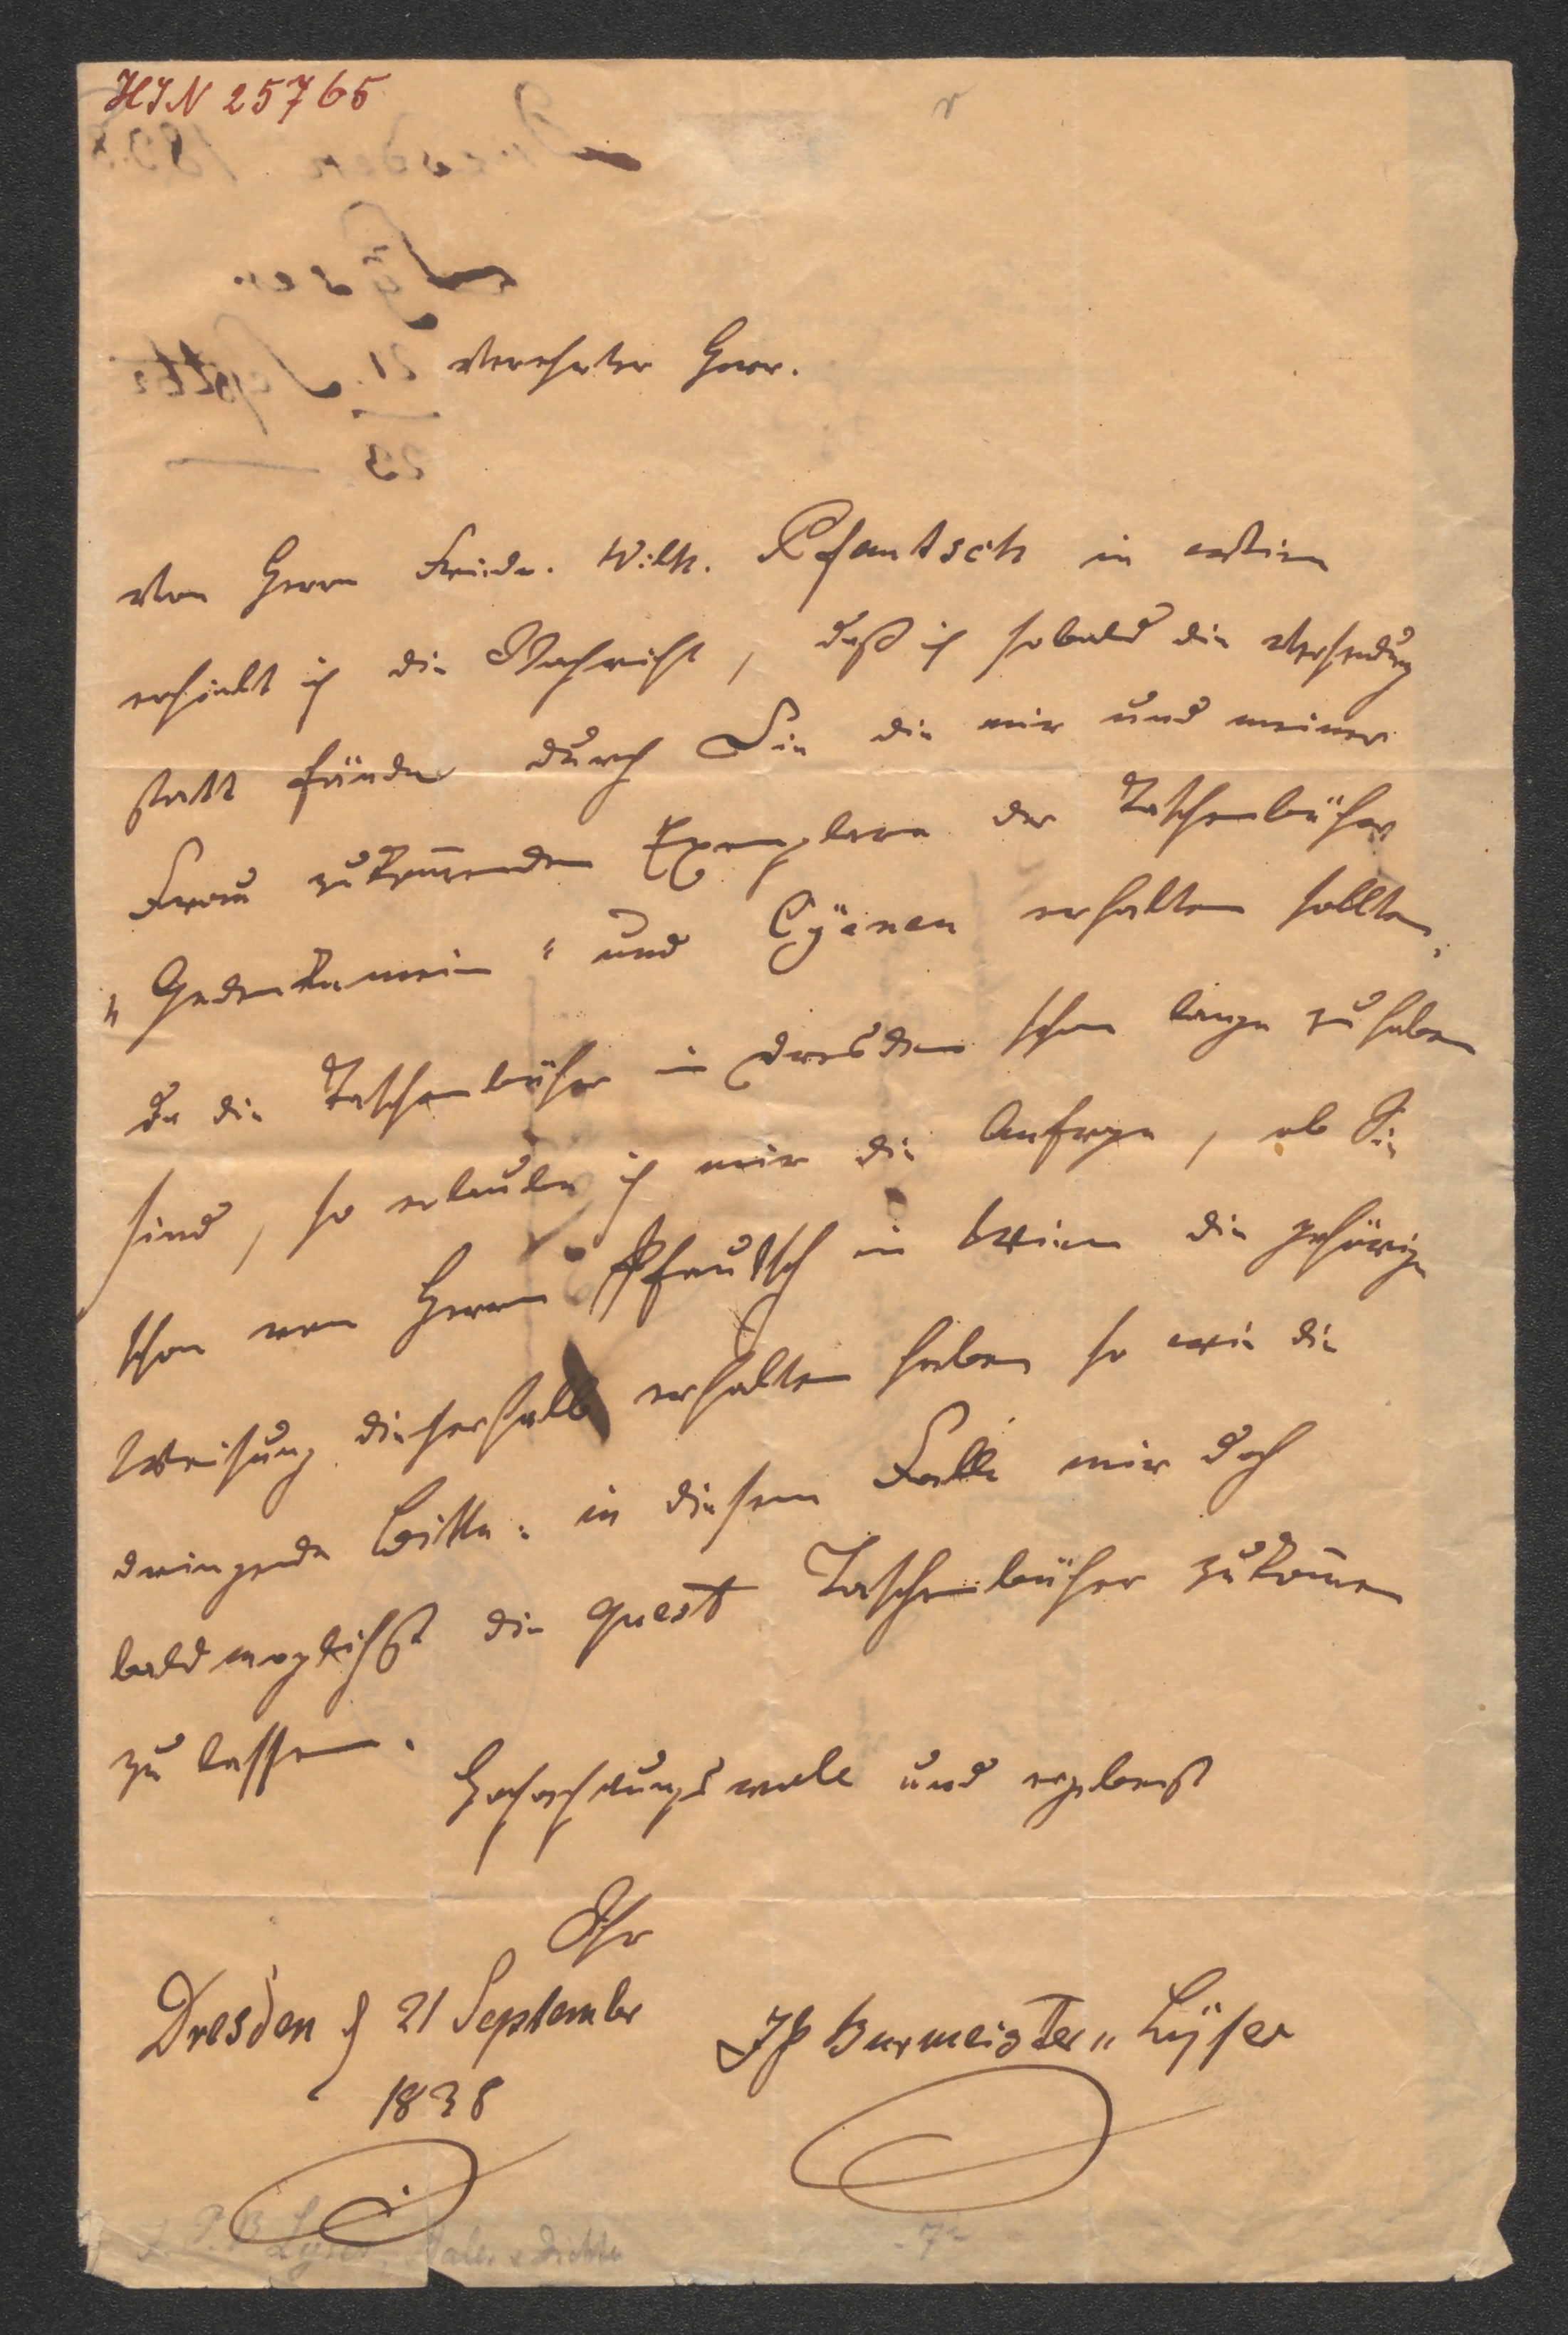 HIN 25765
Verehrter Herr.
Von Herrn Friedr. Wilh. Pfautsch in Wien
erhielt ich die Nachricht, daß ich sobald die Versendung
statt fände durch Sie die mir und meiner
Frau zukom̄enden Exemplare der Taschenbücher
„Gedenkemein“ und Cyanen erhalten sollte,
da die Taschenbücher in Dresden schon lange zu haben
sind, so erlaube ich mir die Anfrage, ob Sie
schon von Herrn Pfautsch in Wien die gehörige
Weisung dieserhalb erhalten haben so wie die
dringende Bitte: in diesem Falle mir doch
baldmöglichst die quest Taschenbücher zukom̄en
zu lassen.
Hochachtungsvoll und ergebenst
Ihr
Dresden d 21 September
1838
JP Burmeister„ Lÿser
J. P. B Lyser, Maler u Dichter
-7-